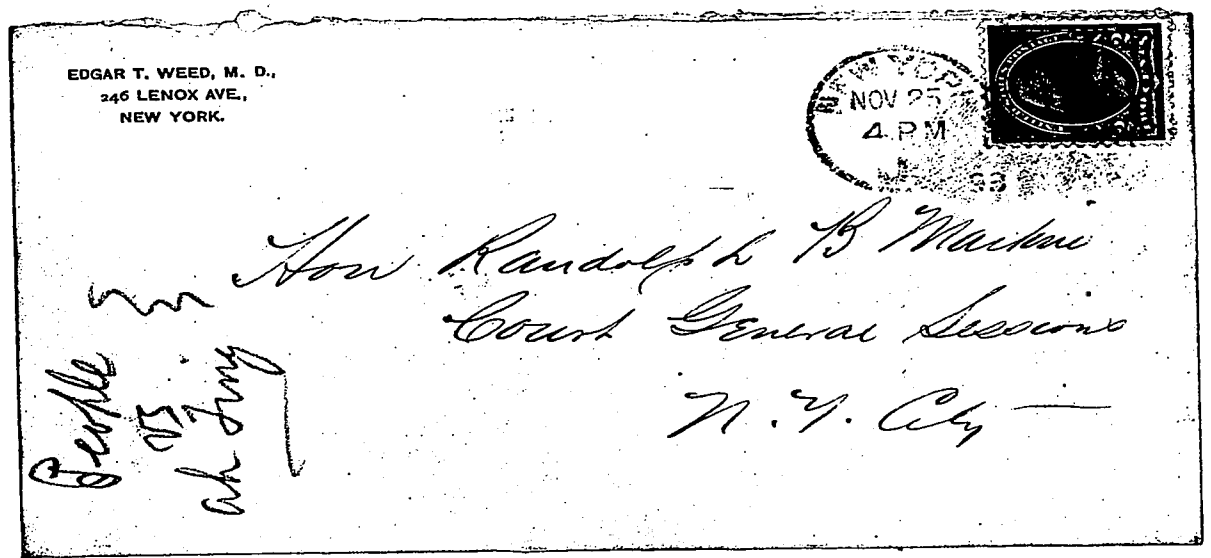 EDGAR T. WEED, M. D.,
246 LENOX AVE.,
NEW YORK.
NEW YORK
NOV 25
4 PM
Hon Randolph B
Court General Sessions
N. Y. City
People
vs
ah